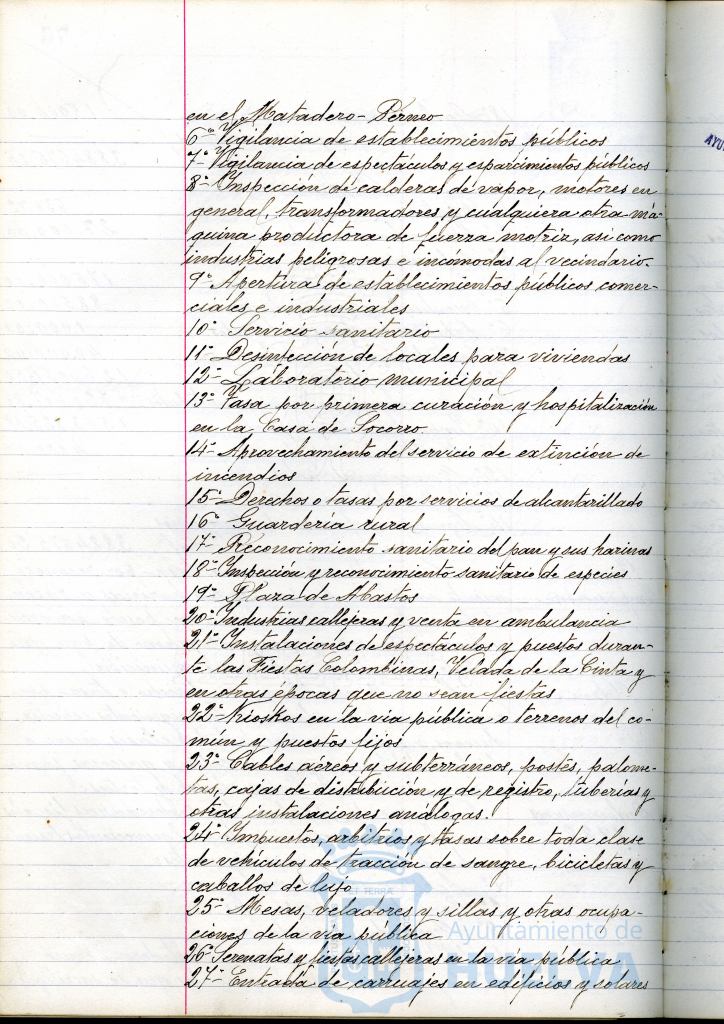 en el Matadero - Perneo
6ª Vigilancia de establecimientos públicos
7ª Vigilancia de espectáculos y esparcimientos públicos
8ª Inspección de calderas de vapor, motores en
general, transformadores y cualquiera otra má-
quina productora de fuerza motriz, asi como
industrias peligrosas e incómodas al vecindario.
9ª Apertura de establecimientos públicos comer-
ciales e industriales
10ª Servicio sanitario
11ª Desinfección de locales para viviendas
12ª Laboratorio municipal
13ª Tasa por primera curación y hospitalización
en la Casa de Socorro.
14ª Aprovechamiento del servicio de extinción de
incendios
15ª Derechos o tasas por servicios de alcantarillado
16ª Guardería rural
17ª Reconocimiento sanitario del pan y sus harinas
18ª Inspección y reconocimiento sanitario de especies
19ª Plaza de Abastos
20ª Industrias callejeras y venta en ambulancia
21ª Instalaciones de espectáculos y puestos duran-
te las Fiestas Colombinas, Velada de la Cinta y
en otras épocas que no sean fiestas
22ª Kioskos en la via pública o terrenos del co-
mún y puestos fijos
23ª Cables aéreos y subterráneos, postes, palome-
tas, cajas de distribución y de registro, tuberias y
otras instalaciones análogas.
24ª Impuestos, arbitrios y tasas sobre toda clase
de vehículos de tracción de sangre, bicicletas y
caballos de lujo
25ª Mesas, veladores y sillas y otras ocupa-
ciones de la via pública
26ª Serenatas y fiestas callejeras en la via pública
27ª Entrada de carruajes en edificios y solares
Ayuntamiento de
HUELVA